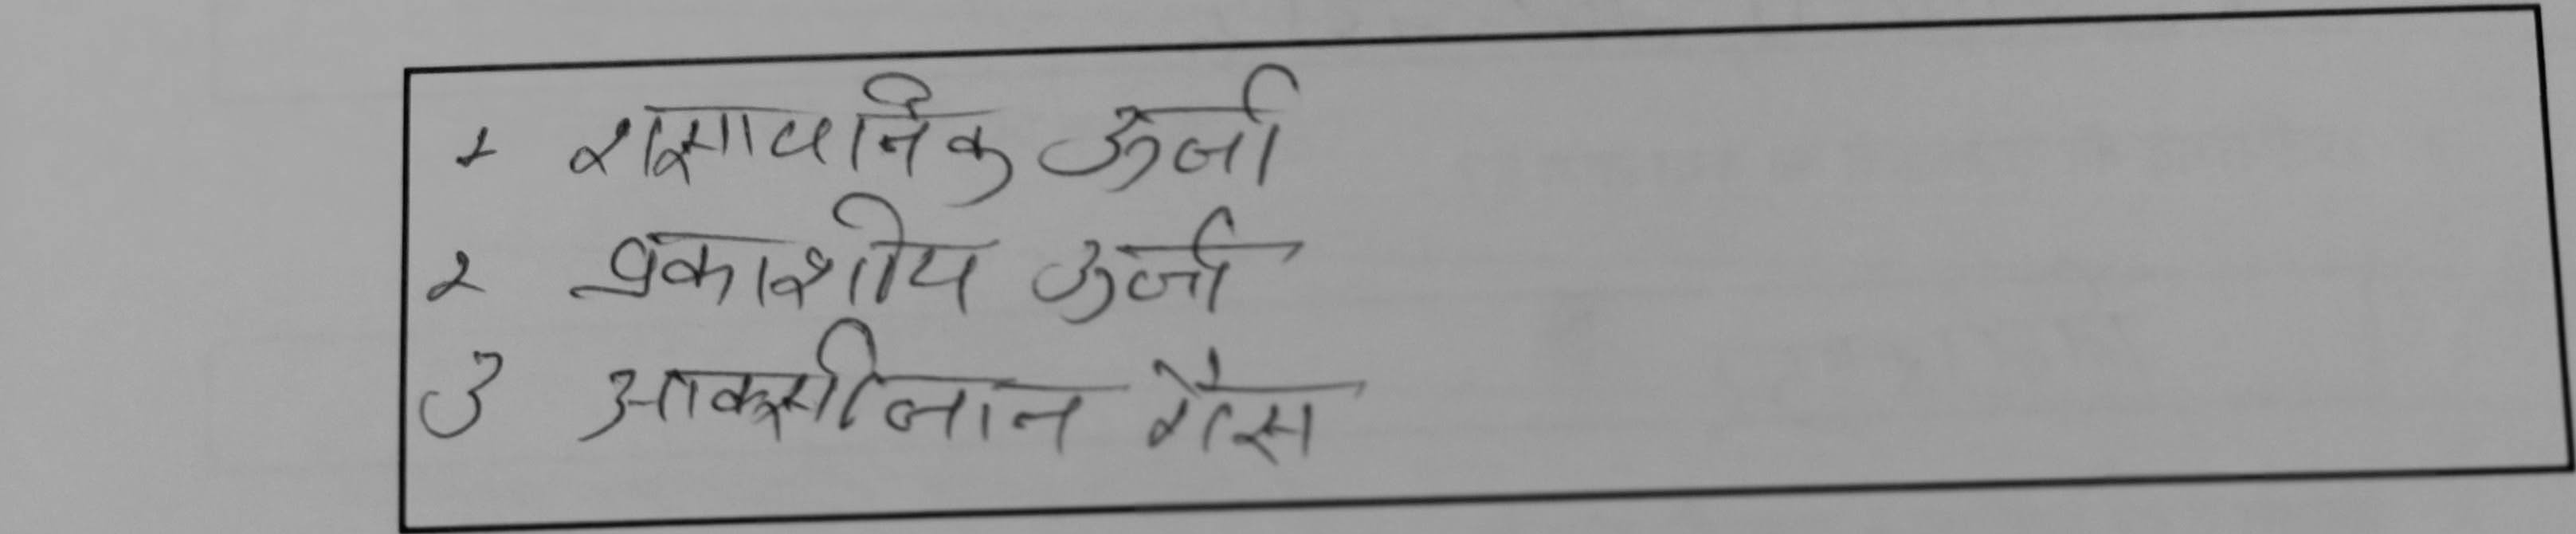 1 रासायनिक ऊर्जा
2 प्रकाशीय ऊर्जा
3 आक्सीजान गैस